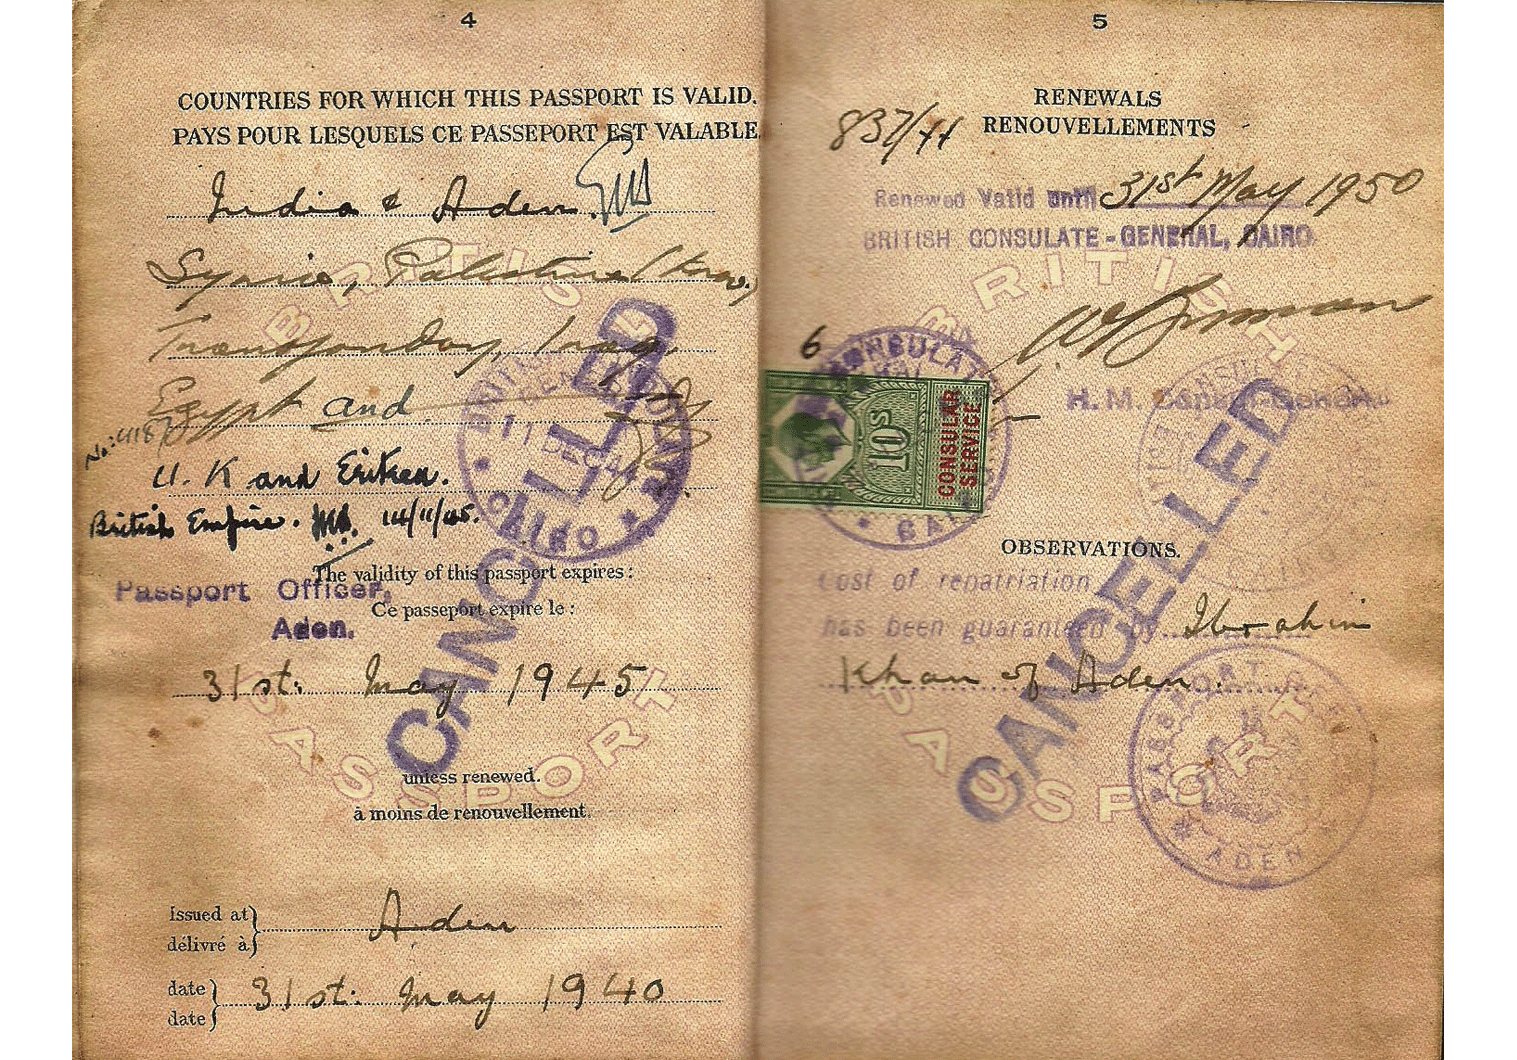 4
COUNTRIES FOR WHICH THIS PASSPORT IS VALID.
PAYS POUR LESQUELS CE PASSEPORT EST VALABLE
India & Aden.
Syria, Palestine
Transjordan, Iraq,
Egypt and
U. K and Eritrea.
British Empire. 14/11/45.
The validity of this passport expires:
Passport Officer,
Ce passeport expire le:
Aden.
31st: May 1945
unless renewed.
à moins de renouvellement.
Issued at
délivré à
Aden
date
date
31st: May 1940
BRITISH
PASSPORT
CANCELLED
11 DEC
CAIRO
5
RENEWALS
RENOUVELLEMENTS
837/44
Renewed Valid until 31st May 1950
BRITISH CONSULATE-GENERAL, CAIRO.
6
10s
CONSULAR
SERVICE
H. M. Consul-General
OBSERVATIONS.
Cost of repatriation
has been guaranteed by Ibrahim
Khan of Aden.
BRITISH
PASSPORT
CANCELLED
PASSPORT
ADEN